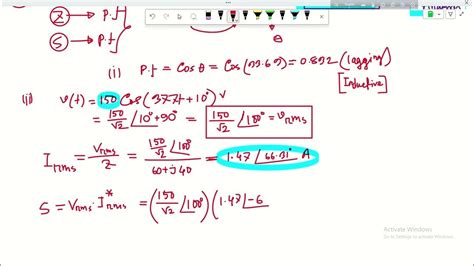 Z → P.f
S → P.f
θ
(i) P.f = Cosθ = Cos(33.69) = 0.832 (lagging)
[Inductive]
(ii) v(t) = 150 Cos(377t+10°) V
= 150/√2 ∠10°+90° = 150/√2 ∠100° = Vrms
Irms = Vrms/Z = 150/√2 ∠100° / 60+j40 = 1.47 ∠66.31° A
S = Vrms . I*rms = (150/√2 ∠100°) (1.47 ∠-6
Activate Windows
Go to Settings to activate Windows.